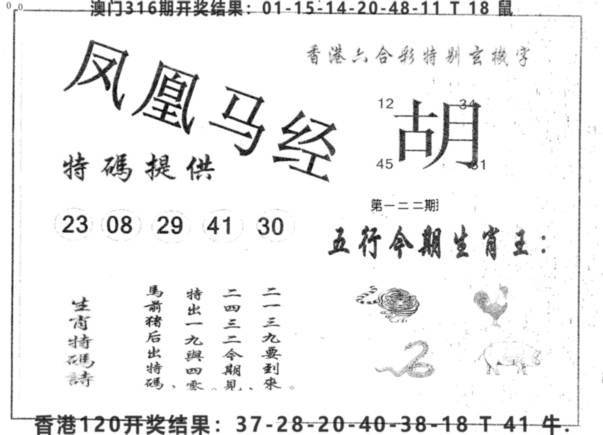 澳门316期开奖结果：01-15-14-20-48-11 T 18 鼠
凤凰马经
香港六合彩特别玄機字
12 34
胡
45 31
特碼提供
第一二二期
23 08 29 41 30
五行今期生肖王：
生肖特碼詩
二一三九要到來。
二四三二今期見、
特出一九與四零。
馬前豬后出特碼、
香港120开奖结果：37-28-20-40-38-18 T 41 牛.